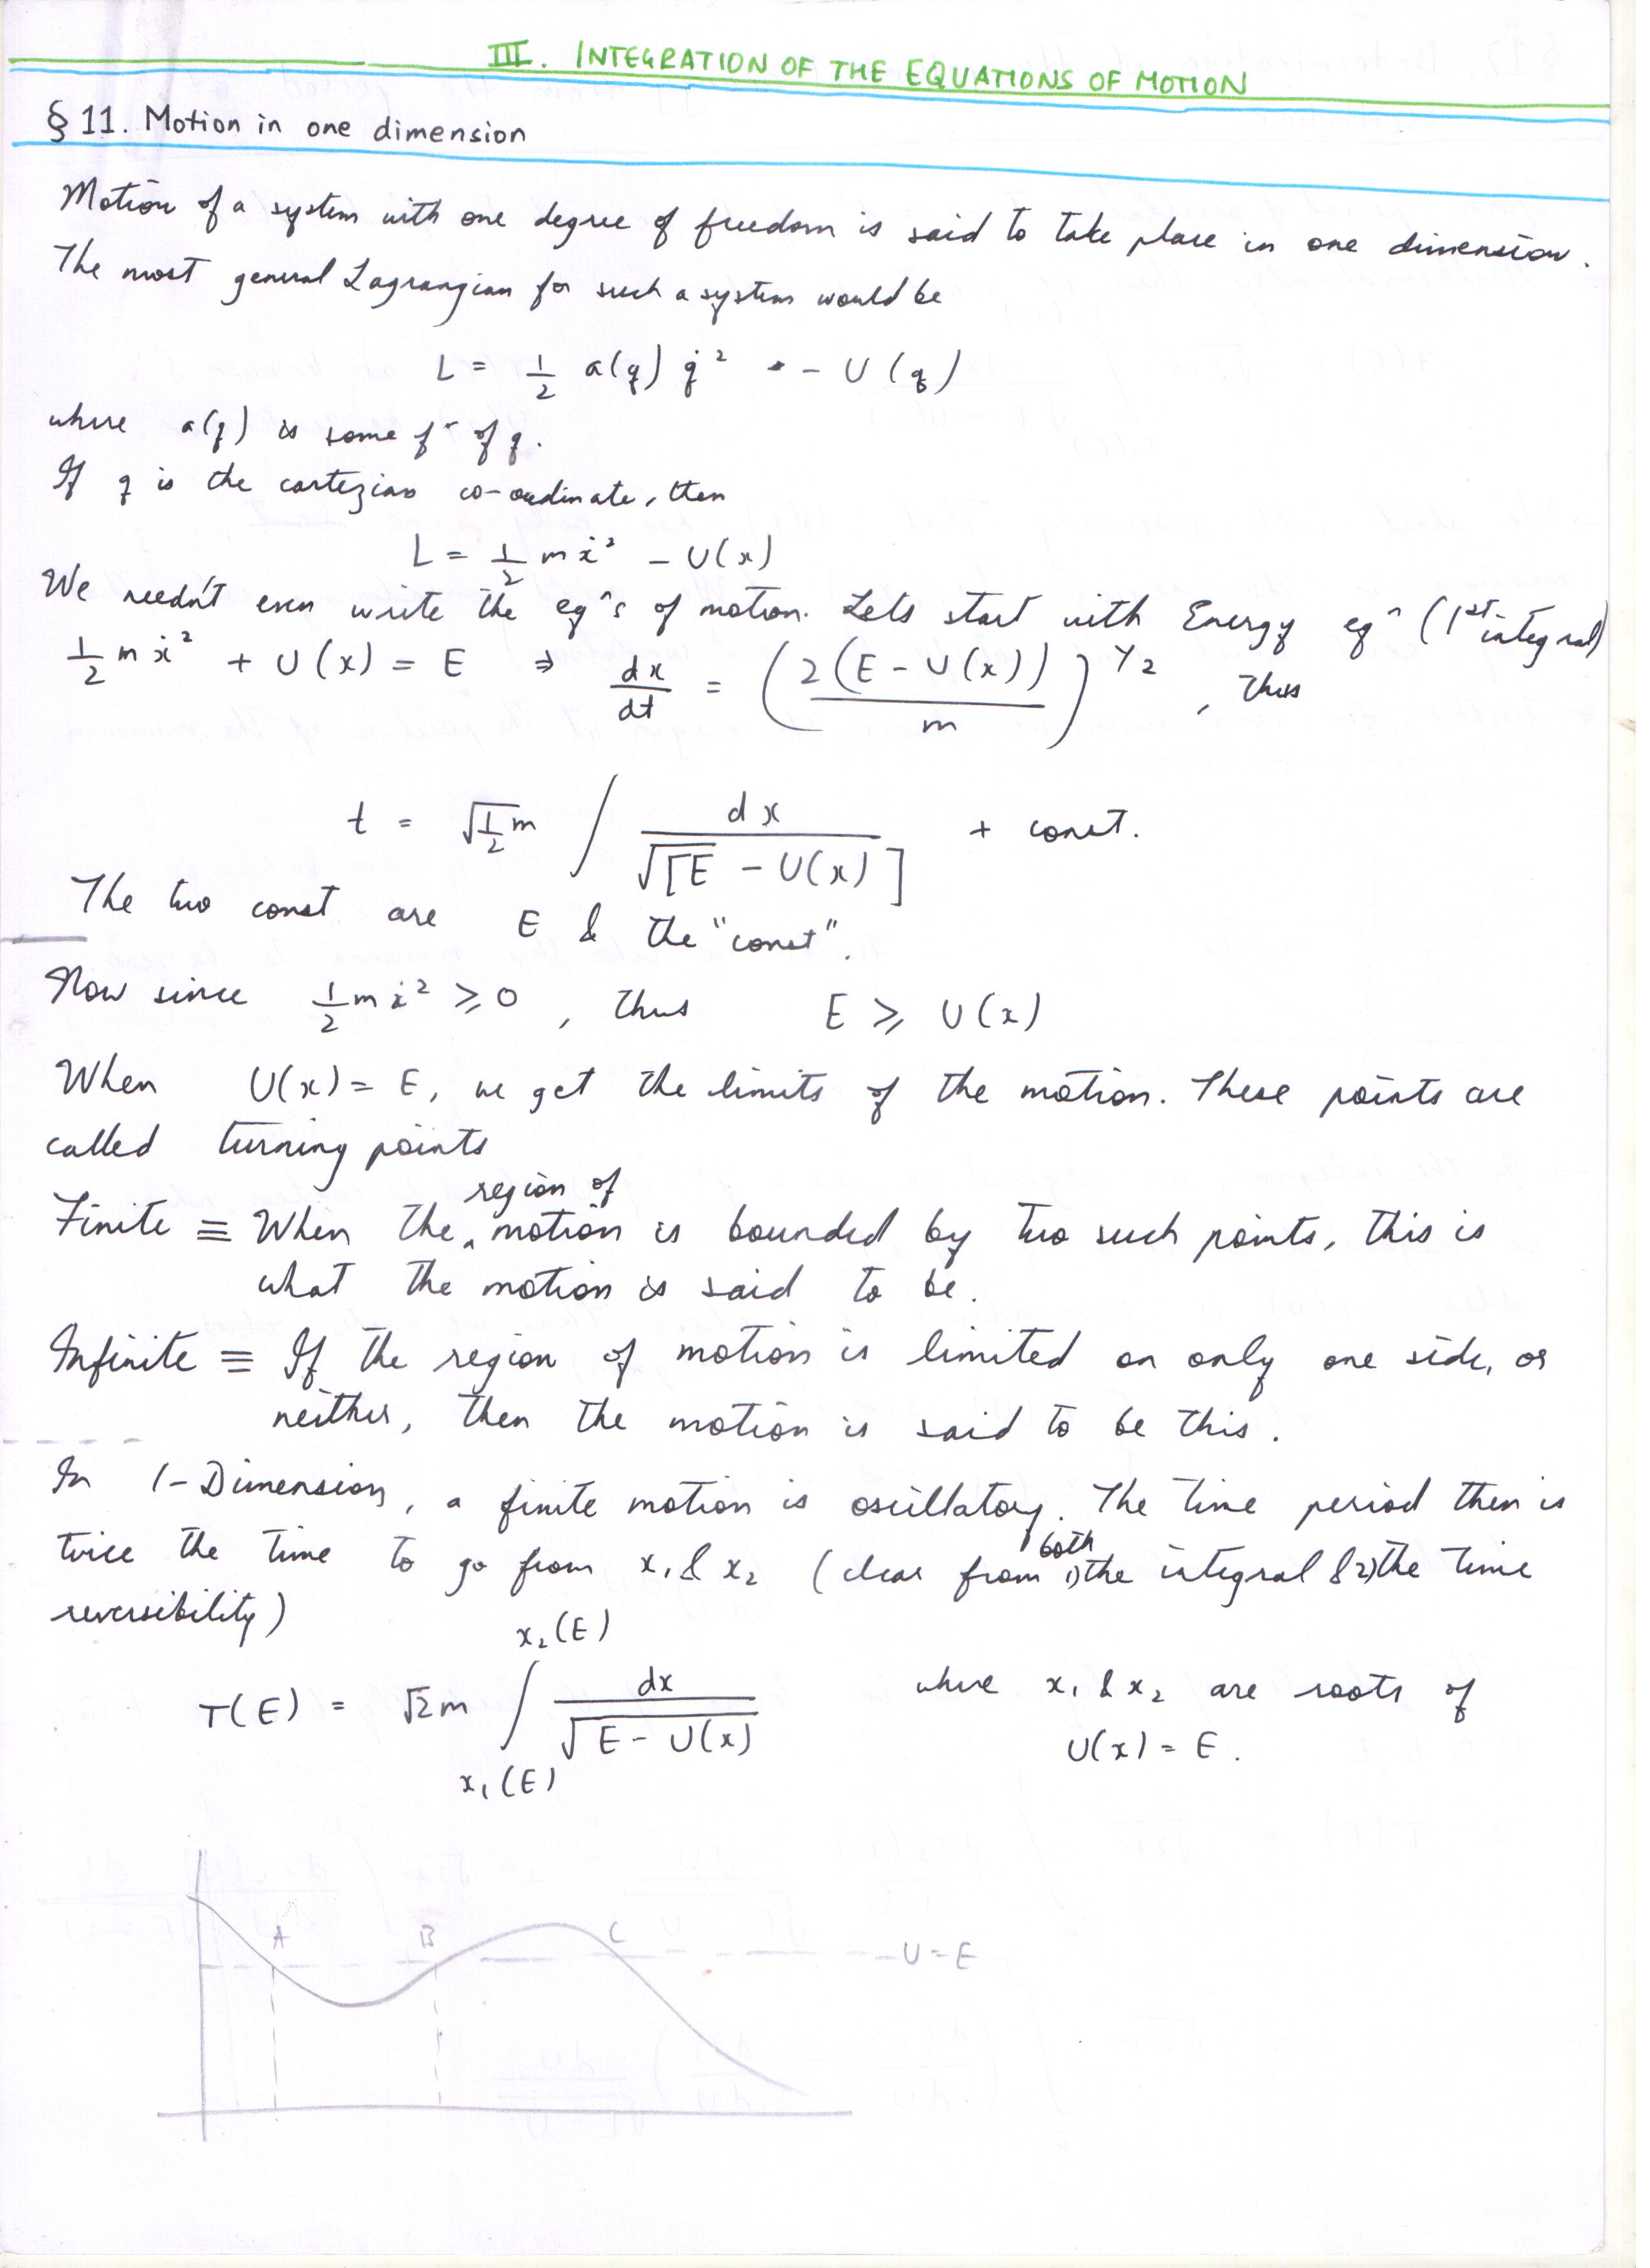 III. INTEGRATION OF THE EQUATIONS OF MOTION
§ 11. Motion in one dimension
Motion of a system with one degree of freedom is said to take place in one dimension.
The most general Lagrangian for such a system would be
L = 1/2 a(q) q̇² - U(q)
where a(q) is some fⁿ of q.
If q is the cartezian co-ordinate, then
L = 1/2 m ẋ² - U(x)
We needn't even write the eqⁿs of motion. Lets start with Energy eqⁿ (1st integral)
1/2 m ẋ² + U(x) = E ⇒ dx/dt = (2(E - U(x))/m)^1/2, Thus
t = √1/2 m ∫ dx/√[E - U(x)] + const.
The two const are E & the "const".
Now since 1/2 m ẋ² ≥ 0, thus E ≥ U(x)
When U(x) = E, we get the limits of the motion. These points are
called turning points
Finite ≡ When the region of motion is bounded by two such points, this is
what the motion is said to be.
Infinite ≡ If the region of motion is limited on only one side, or
neither, then the motion is said to be this.
In 1-Dimension, a finite motion is oscillatory. The time period then is
twice the time to go from x₁ & x₂ (clear from both 1) the integral & 2) the time
reversibility)
T(E) = √2m ∫ x₁(E) x₂(E) dx/√E - U(x) where x₁ & x₂ are roots of
U(x) = E.
A B C U = E